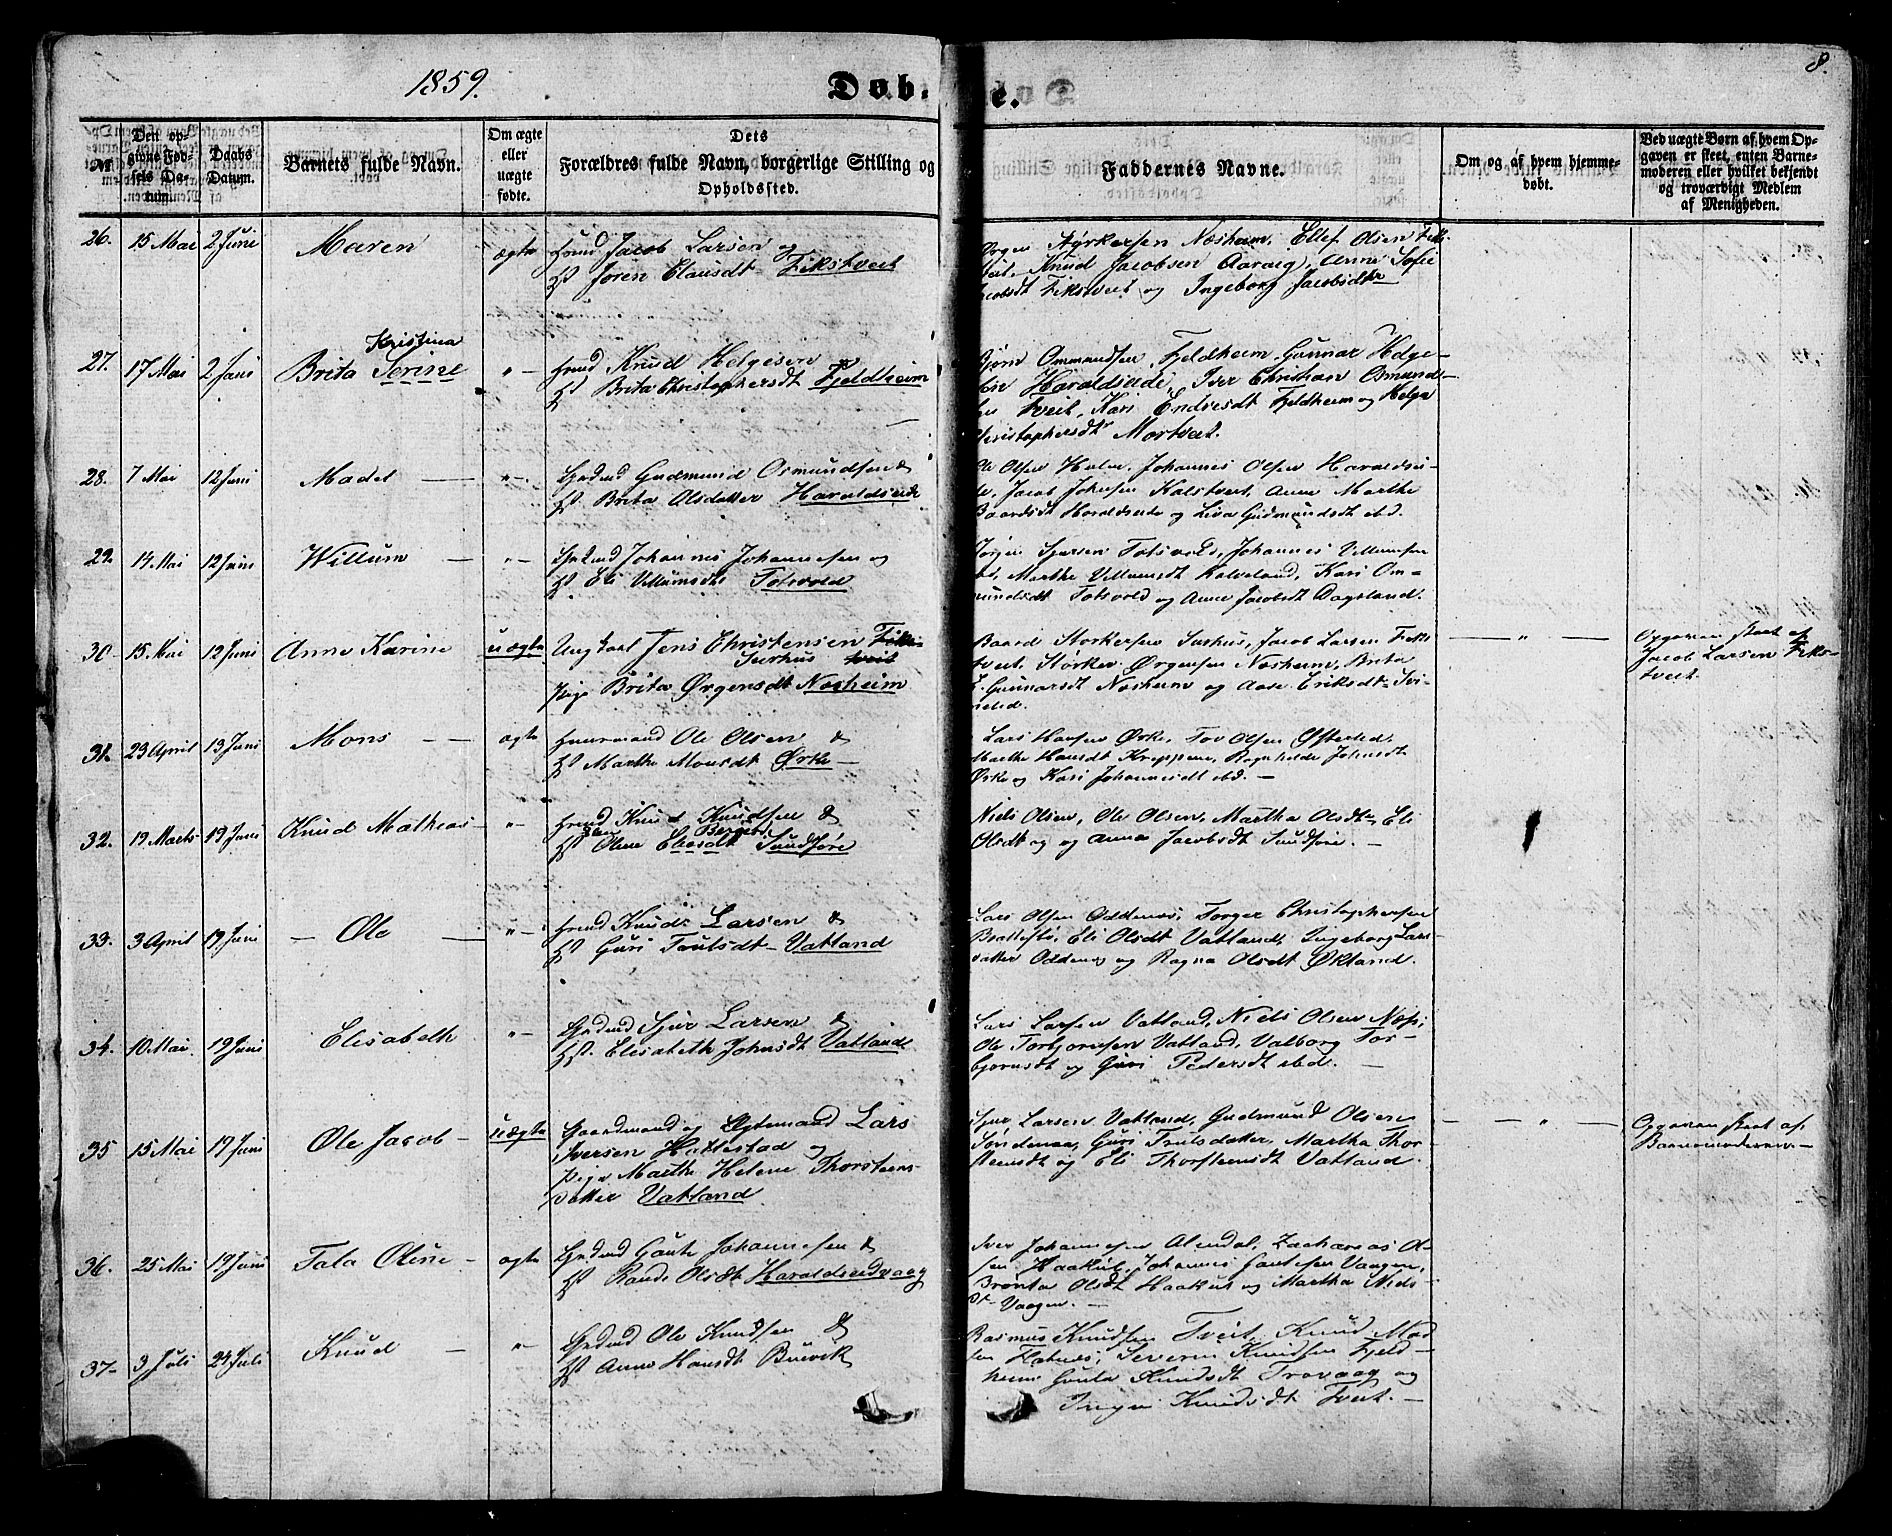 1859.
8.
Døb-
e.
№
Den op-
givne Fød-
sels Da-
tum.
Daabs
Datum.
Barnets fulde Navn.
Om ægte
eller
uægte
fødte.
Dets
Forældres fulde Navn, borgerlige Stilling og
Opholdssted.
Faddernes Navne.
Om og af hvem hjemme-
døbt.
Ved uægte Børn af hvem Op-
gaven er skeet, enten Barne-
moderen eller hvilket bekjendt
og troværdigt Medlem
af Menigheden.
26. 15 Mai 2 Juni Maren ægte Hmd Jacob Larsen og
Hst Joren Clausdt Fikstveit
Ørgen Styrkersen Nøsheim, Ellef Olsen Fiks-
tveit, Knud Jacobsen Aarvig, Anne Sofie
Jacobsdt Fikstveit og Ingeborg Jacobsdtr
27. 17 Mai 2 Juni Brita Serine Kristina "- Hmd Knud Helgesen
Hst Brita Christophersdt Fjeldheim
Bjørn Ommundsen Fjeldheim, Gunnar Helge-
sen Haraldseide, Iver Christian Osmund-
Tveit, Kari Endresdt Fjeldheim og Helga
Christophersdtr Mortveit.
28. 7 Mai 12 Juni Madel "- Grdmd Gudmund Osmundsen &
Hst Brita Olsdatter Haraldseide
Ole Olsen Johannes Olsen Haraldsei-
de, Jacob Johnsen Kalstveit, Anne Marthe
Baardsdt Haraldseide og Liva Gudmundsdt ibd.
29. 14 Mai 12 Juni Willum "- Grdmd Johannes Johannesen og
Hst Eli Villumsdt Totsvold
Jørgen Sjursen Totsvold, Johannes Villumsen
ibd, Marthe Villumsdt Kalveland, Kari Om-
mundsdt Totsvold og Anne Jacobsdt Dagsland.
30. 15 Mai 12 Juni Anne Karine uægte Ungkarl Jens Christensen Fiks-
Surhus tveit
Pige Brita Ørgensdt Nøsheim
Baard Storkersen Surhus, Jacob Larsen Fiks-
tveit, Størker Ørgensen Nøsheim, Brita
Gunnarsdt Nøsheim og Aase Eriksdt
ibd.
— " —
Opgaven skeet af
Jacob Larsen Fiks-
tveit.
31. 23 April 13 Juni Mons ægte Huusmand Ole Olsen &
Hst Marthe Monsdt Ørke
Lars Hansen Ørke, Tor Olsen Øfsteb,
Marthe Hansdt Ragnhilde Johnsdt
Ørke og Kari Johannesdt ibd.
32. 19 Marts 19 Juni Knud Mathias "- Hmd Knud Knudsen &
Hst Olene Eliasdt Sundføre
Niels Olsen, Ole Olsen, Martha Olsdtr, Eli
Olsdt og og Anna Jacobsdt Sundføre.
33. 3 April 19 Juni Ole "- Hmd Knud Larsen &
Hst Guri Trulsdt Vatland
Lars Olsen Oddenæs, Torger Christophersen
Brattestø, Eli Olsdt Vatland, Ingeborg Lars-
datter Oddenæs og Ragna Olsdt Økland.
34. 10 Mai 19 Juni Elisabeth "- Grdmd Sjur Larsen &
Hst. Elisabeth Johnsdt Vatland
Lars Larsen Vatland, Niels Olsen Næs,
Ole Torbjornsen Vatland, Valborg Tor-
bjornsdt og Guri Pedersdt ibd.
35 15 Mai 19 Juni Ole Jacob uægte Gaardmand og Ægtemand Lars
Iversen Hattestad og
Pige Marth Helene Thorsteens-
datter Vatland
Sjur Larsen Vatland, Gudmund Olsen
Søndenaa, Guri Trulsdatter, Martha Thor-
steensdt og Eli Thorsteensdt Vatland.
— " —
Opgaven skeet af
Barnemoderen.
36. 25 Mai 19 Juni Tala Olene ægte Grdmd Gaute Johannesen &
Hst Rande Olsdt Haraldseidvaag
Iver Johannesen Alendal, Zacharias Ol-
sen Haakul, Johannes Gautesen Vaagen,
Brønta Olsdt Haakul og Martha Niels-
dt Vaagen.
37. 3 Juli 24 Juli Knud "- Grdmd Ole Knudsen &
Hst Anne Hansdt Buevik
Rasmus Knudsen Tveit, Knud Mad-
sen Flatnæs, Severin Knudsen Fjeld-
heim Gunla Knudsdt Trovaag og
Inger Knudsdt Tveit.